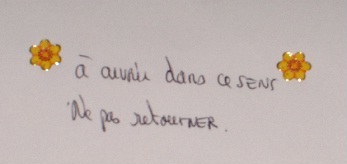 à ouvrir dans ce SENS
Ne pas retourNER.